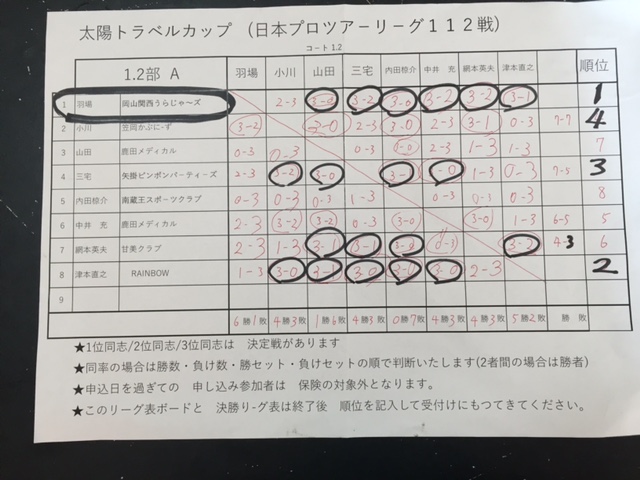 太陽トラベルカップ （日本プロツアーリーグ１１２戦）
コート 1.2
1.2部 A 羽場 小川 山田 三宅 内田椋介 中井 充 網本英夫 津本直之 順位
1 羽場 岡山関西うらじゃ～ズ 2-3 3-0 3-2 3-0 3-2 3-2 3-1 1
2 小川 笠岡かぶに-ず 3-2 3-0 2-3 3-0 2-3 3-1 0-3 7-7 4
3 山田 鹿田メディカル 0-3 0-3 0-3 0-0 2-3 1-3 1-3 7
4 三宅 矢掛ピンポンパーティーズ 2-3 3-2 3-0 3- -0 1-3 0-3 7-5 3
5 内田椋介 南蔵王スポーツクラブ 0-3 0-3 0-3 1-3 0-3 0-3 0-3 8
6 中井 充 鹿田メディカル 2-3 3-2 3-2 0-3 3-0 3-0 1-3 6-5 5
7 網本英夫 甘美クラブ 2-3 1-3 3-1 3-1 3-0 0-3 3-2 4-3 6
8 津本直之 RAINBOW 1-3 3-0 3-1 3 0 3-0 3-0 2-3 2
9
6勝1敗 4勝3敗 1勝6敗 4勝3敗 0勝7敗 4勝3敗 4勝3敗 5勝2敗 勝 敗
★1位同志/2位同志/3位同志は 決定戦があります
★同率の場合は勝数・負け数・勝セット・負けセットの順で判断いたします(2者間の場合は勝者)
★申込日を過ぎての 申し込み参加者は 保険の対象外となります。
★このリーグ表ボードと 決勝り-グ表は終了後 順位を記入して受付けにもつてきてください。